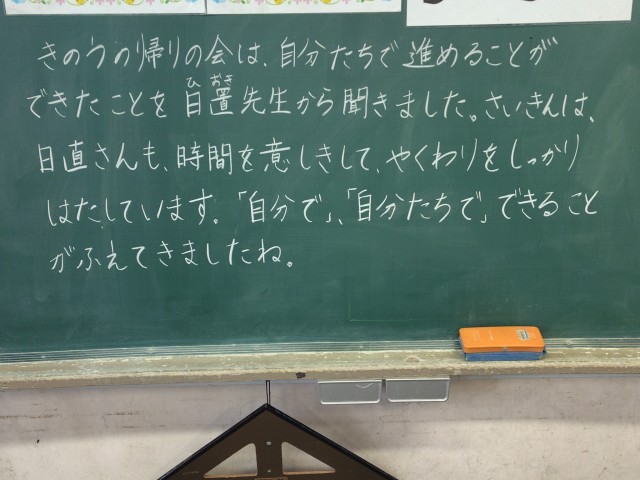 きのうの帰りの会は、自分たちで進めることが
できたことを日置先生から聞きました。さいきんは、
日直さんも、時間を意しきして、やくわりをしっかり
はたしています。「自分で」、「自分たちで」できること
がふえてきましたね。